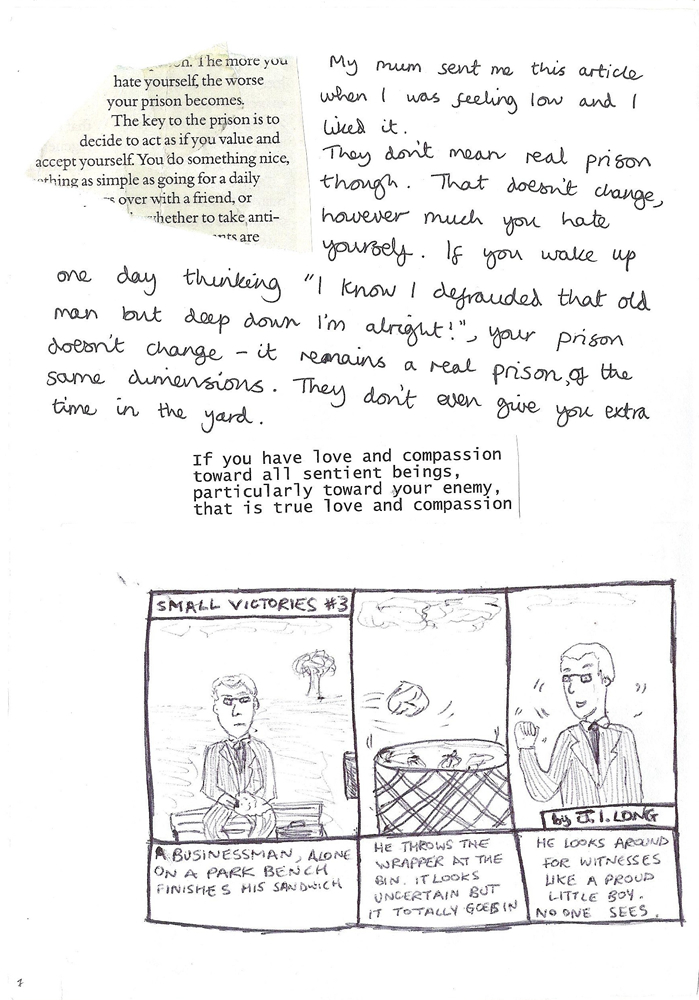 The more you
hate yourself, the worse
your prison becomes.
The key to the prison is to
decide to act as if you value and
accept yourself. You do something nice,
as simple as going for a daily
over with a friend, or
whether to take anti-
are
My mum sent me this article
when I was feeling low and I
liked it.
They don't mean real prison
though. That doesn't change,
however much you hate
yourself. If you wake up
one day thinking "I know I defrauded that old
man but deep down I'm alright!", your prison
doesn't change - it remains a real prison, of the
same dimensions. They don't even give you extra
time in the yard.
If you have love and compassion
toward all sentient beings,
particularly toward your enemy,
that is true love and compassion
SMALL VICTORIES #3
A BUSINESSMAN, ALONE
ON A PARK BENCH
FINISHES HIS SANDWICH
HE THROWS THE
WRAPPER AT THE
BIN. IT LOOKS
UNCERTAIN BUT
IT TOTALLY GOES IN
by J. I. LONG
HE LOOKS AROUND
FOR WITNESSES
LIKE A PROUD
LITTLE BOY.
NO ONE SEES.